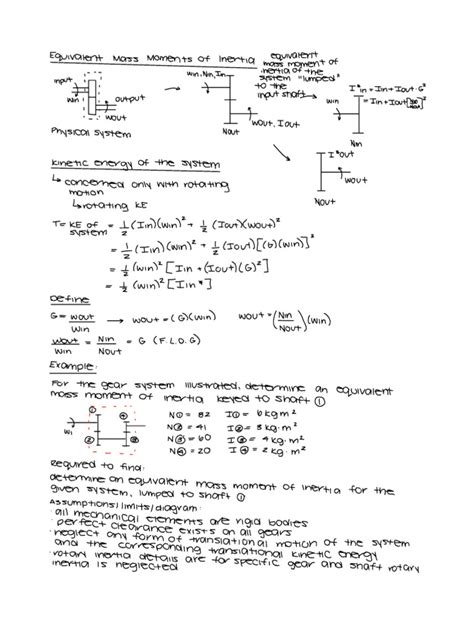 Equivalent Mass Moments of Inertia
equivalent
mass moment of
inertia of the
system "lumped"
to the
input shaft
input
win
output
wout
Physical system
win, Nin, Iin
wout, Iout
Nout
I*in = Iin + Iout · G²
= Iin + Iout
win
Nin
I*out
wout
Nout
Kinetic energy of the system
↳ concerned only with rotating
motion
↳ rotating KE
T = KE of system = 1/2 (Iin)(win)² + 1/2 (Iout)(wout)²
= 1/2 (Iin)(win)² + 1/2 (Iout)[(G)(win)]²
= 1/2 (win)² [Iin + (Iout)(G)²]
= 1/2 (win)² [Iin*]
Define
G = wout/win → wout = (G)(win) wout = (Nin/Nout)(win)
wout/win = Nin/Nout = G (F.L.O.G)
Example:
For the gear system illustrated, determine an equivalent
mass moment of inertia keyed to shaft ①
① ② ③ ④
wi
N① = 82 I① = 6 kg·m²
N② = 41 I② = 3 kg·m²
N③ = 60 I③ = 4 kg·m²
N④ = 20 I④ = 2 kg·m²
Required to find:
determine an equivalent mass moment of inertia for the
given system, lumped to shaft ①
Assumptions/limits/diagram:
· all mechanical elements are rigid bodies
· perfect clearance exists on all gears
· neglect any form of translational motion of the system
and the corresponding translational kinetic energy
· rotary inertia details are for specific gear and shaft rotary
inertia is neglected